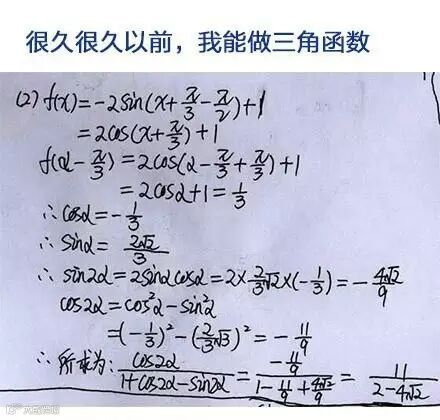 很久很久以前，我能做三角函数
(2) f(x)=-2sin(x+π/3-π/2)+1
=2cos(x+π/3)+1
f(α-π/3)=2cos(α-π/3+π/3)+1
=2cosα+1=1/3
∴cosα=-1/3
∴sinα=2√2/3
∴sin2α=2sinαcosα=2×2/3√2×(-1/3)=-4√2/9
cos2α=cos²α-sin²α
=(-1/3)²-(2/3√3)²=-11/9
∴所求为:cos2α/1+cos2α-sin2α=-11/9/1-11/9+4√2/9=11/2-4√2